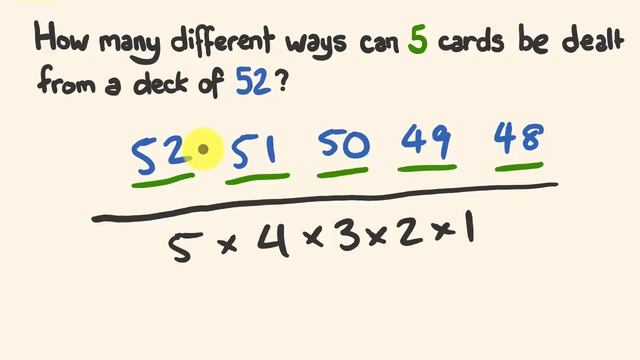 How many different ways can 5 cards be dealt
from a deck of 52?
52 51 50 49 48
5 × 4 × 3 × 2 × 1